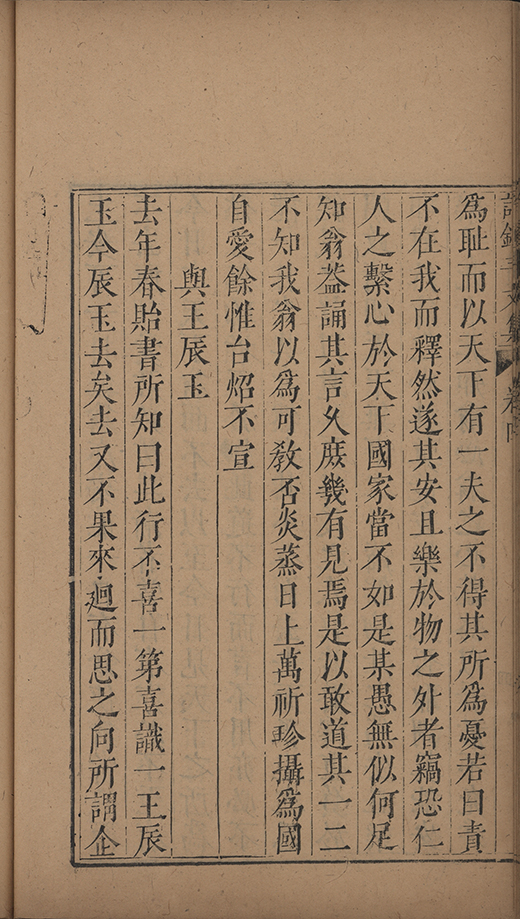 爲恥而以天下有一夫之不得其所爲憂若曰責
不在我而釋然遂其安且樂於物之外者竊恐仁
人之繫心於天下國家當不如是某愚無似何足
知翁葢誦其言久庻幾有見焉是以敢道其一二
不知我翁以爲可敎否炎蒸日上萬祈珍攝爲國
自愛餘惟台炤不宣
與王辰玉
去年春貽書所知曰此行不喜一第喜識一王辰
玉今辰玉去矣去又不果來廻而思之向所謂企